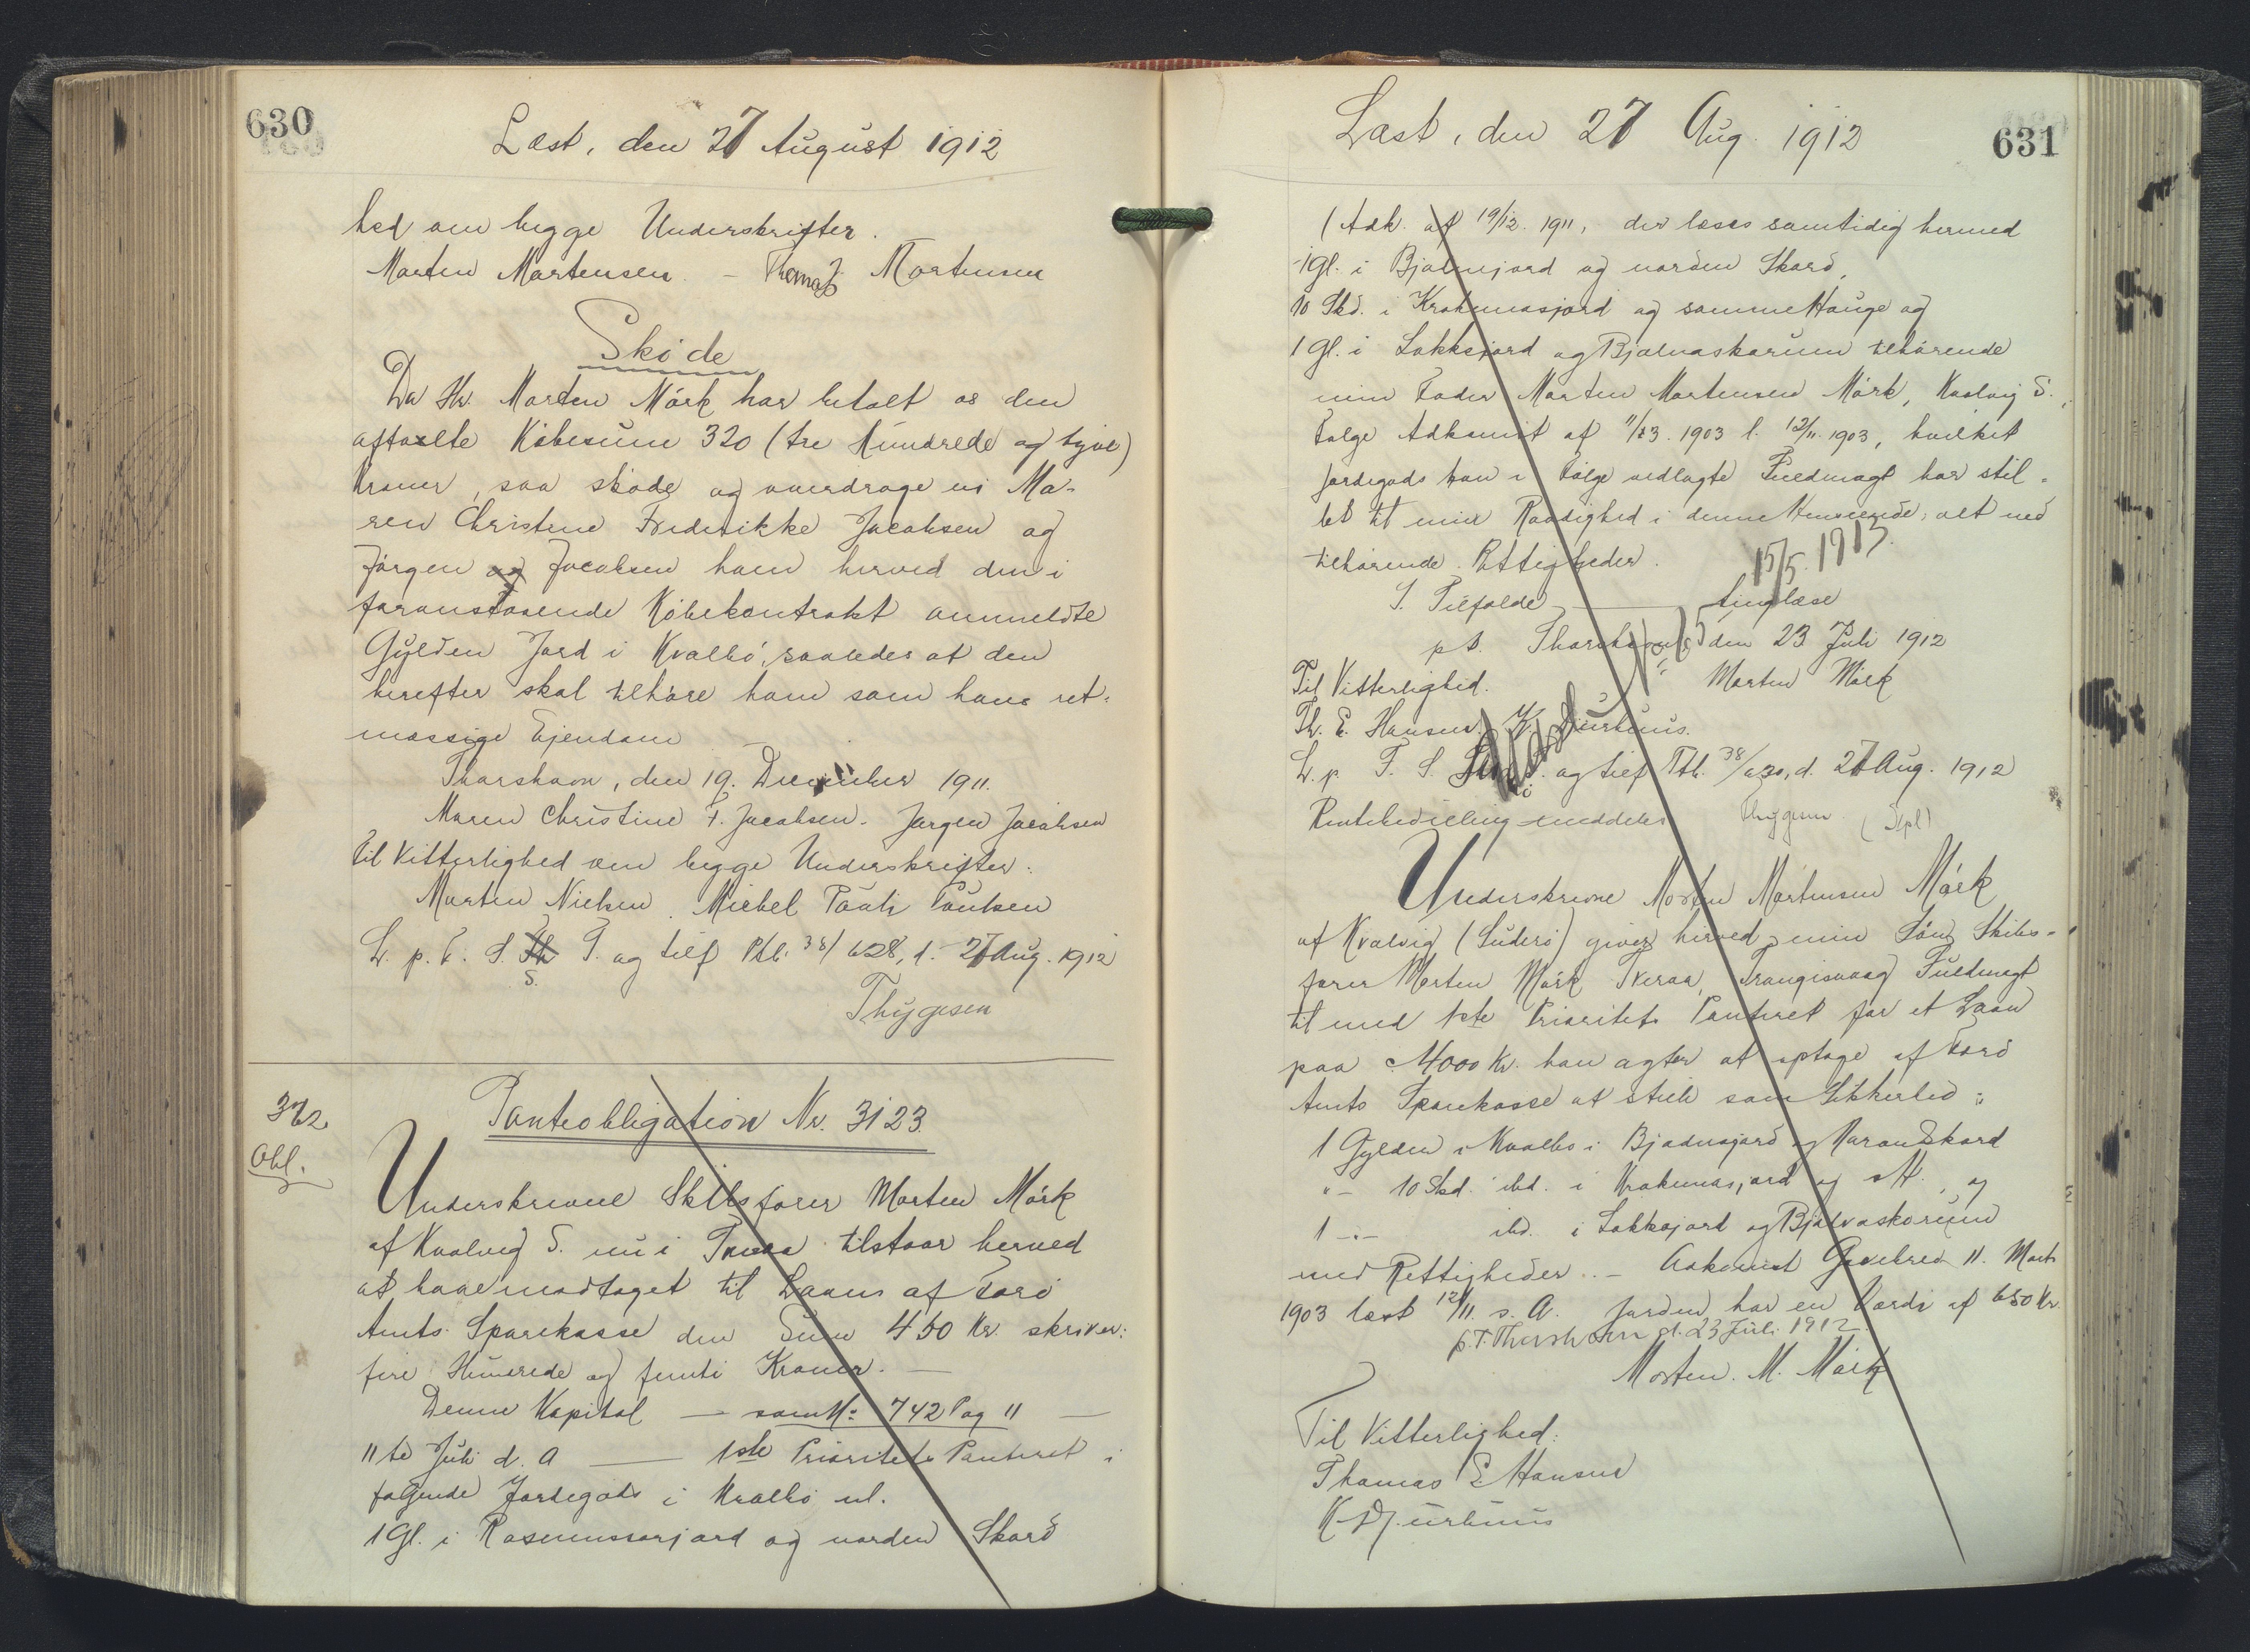 630
Læst, den 27 August 1912
hed om begge Underskrifter.
Morten Mortensen – Thomas J. Mortensen
Skøde
Da Hr. Morten Mørk har betalt os den
aftalte Købesum 320 (tre Hundrede og tyve)
Kroner, saa skøde og overdrage vi Ma-
ren Christine Frederikke Jacobsen og
Jørgen og Jacobsen ham herved den i
foranstaaende Købekontrakt ommeldte
Gylden Jord i Kvalbø, saaledes at den
herefter skal tilhøre ham som hans ret-
mæssige Ejendom
Thorshavn, den 19. December 1911.
Maren Christine F. Jacobsen. Jørgen Jacobsen
Til Vitterlighed om begge Underskrifter:
Morten Nielsen. Michel Pauli Poulsen
L. p. F. S. S. T. og tilf Ptb. 38/628, d. 27 Aug. 1912
Thygesen
372
Obl.
Panteobligation Nr. 3123.
Underskrevne Skibsfører Morten Mørk
af Kvalvig S. nu i Tveraa tilstaar herved
at have modtaget til Laans af Færø
Amts Sparekasse den Sum 450 Kr. skriver:
fire Hundrede og femti Kroner. —
Denne Kapital — som No 742 Pag 11 —
11te Juli d. A — 1ste Prioritets Panteret i
følgende Jordegods i Kvalbø nl.
1 Gl. i Rasmussarjord og norden Skarð
631
Læst, den 27 Aug. 1912
(Adk. af 19/12. 1911, der læses samtidig hermed
1 Gl. i Bjadnijord og norden Skarð,
10 Skd. i Krakunasjord og samme Hauge og
1 Gl. i Lokksjord og Bjalvaskorum tilhørende
min Fader Morten Mortensen Mørk, Kvalvig S.
Følge Adkomst af 11/3. 1903 l. 12/11. 1903, hvilket
Jordegods han i Følge vedlagte Fuldmagt har stil-
let til min Raadighed i denne Henseende, alt med
tilhørende Rettigheder.
15/5. 1913.
S. Tilfælde — tinglæse
p t. Thorshavn den 23 Juli 1912
Til Vitterlighed. Morten Mørk
Th. E. Hansen. K. Djurhuus.
L. p. F. S. og tilf Ptb. 38/630, d. 27 Aug. 1912
Thygesen
Underskrevne Morten Mortensen Mørk
af Kvalvig (Suderø) giver herved min Søn Skibs-
fører Morten Mørk Tveraa, Trangisvaag Fuldmagt
til med 1ste Prioritets Panteret for et Laan
paa 4000 Kr. han agter at optage af Færø
Amts Sparekasse at stille som Sikkerhed:
1 Gylden i Kvalbø i Bjadnajord og Norden Skard
"– 10 Skd. ibd. i Krakunasjord og s H., og
1 –"– ibd. i Lokksjord og Bjalvaskorum
med Rettigheder. – Adkomst Gavebrev 11. Marts
1903 læst 12/11. s. A. Jorden har en Værdi af 650 Kr.
p.T. Thorshavn d. 23 Juli 1912.
Morten. M. Mørk
Til Vitterlighed:
Thomas E. Hansen
K Djurhuus